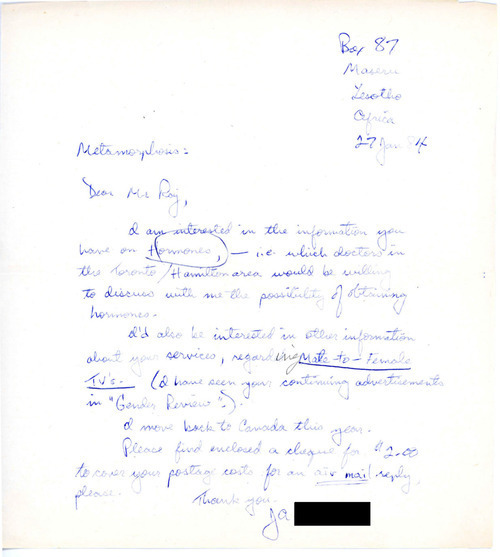 Box 87
Maseru
Lesotho
Africa
27 Jan 84
Metamorphosis:
Dear Mr Roy,
I am interested in the information you
have on Hormones, — i.e. which doctors in
the Toronto/Hamilton area would be willing
to discuss with me the possibility of obtaining
hormones.
I'd also be interested in other information
about your services, regarding Male-to-Female
TV's. (I have seen your continuing advertisements
in "Gender Review".).
I move back to Canada this year.
Please find enclosed a cheque for $2.00
to cover your postage costs for an air mail reply,
please.
Thank you.
JA